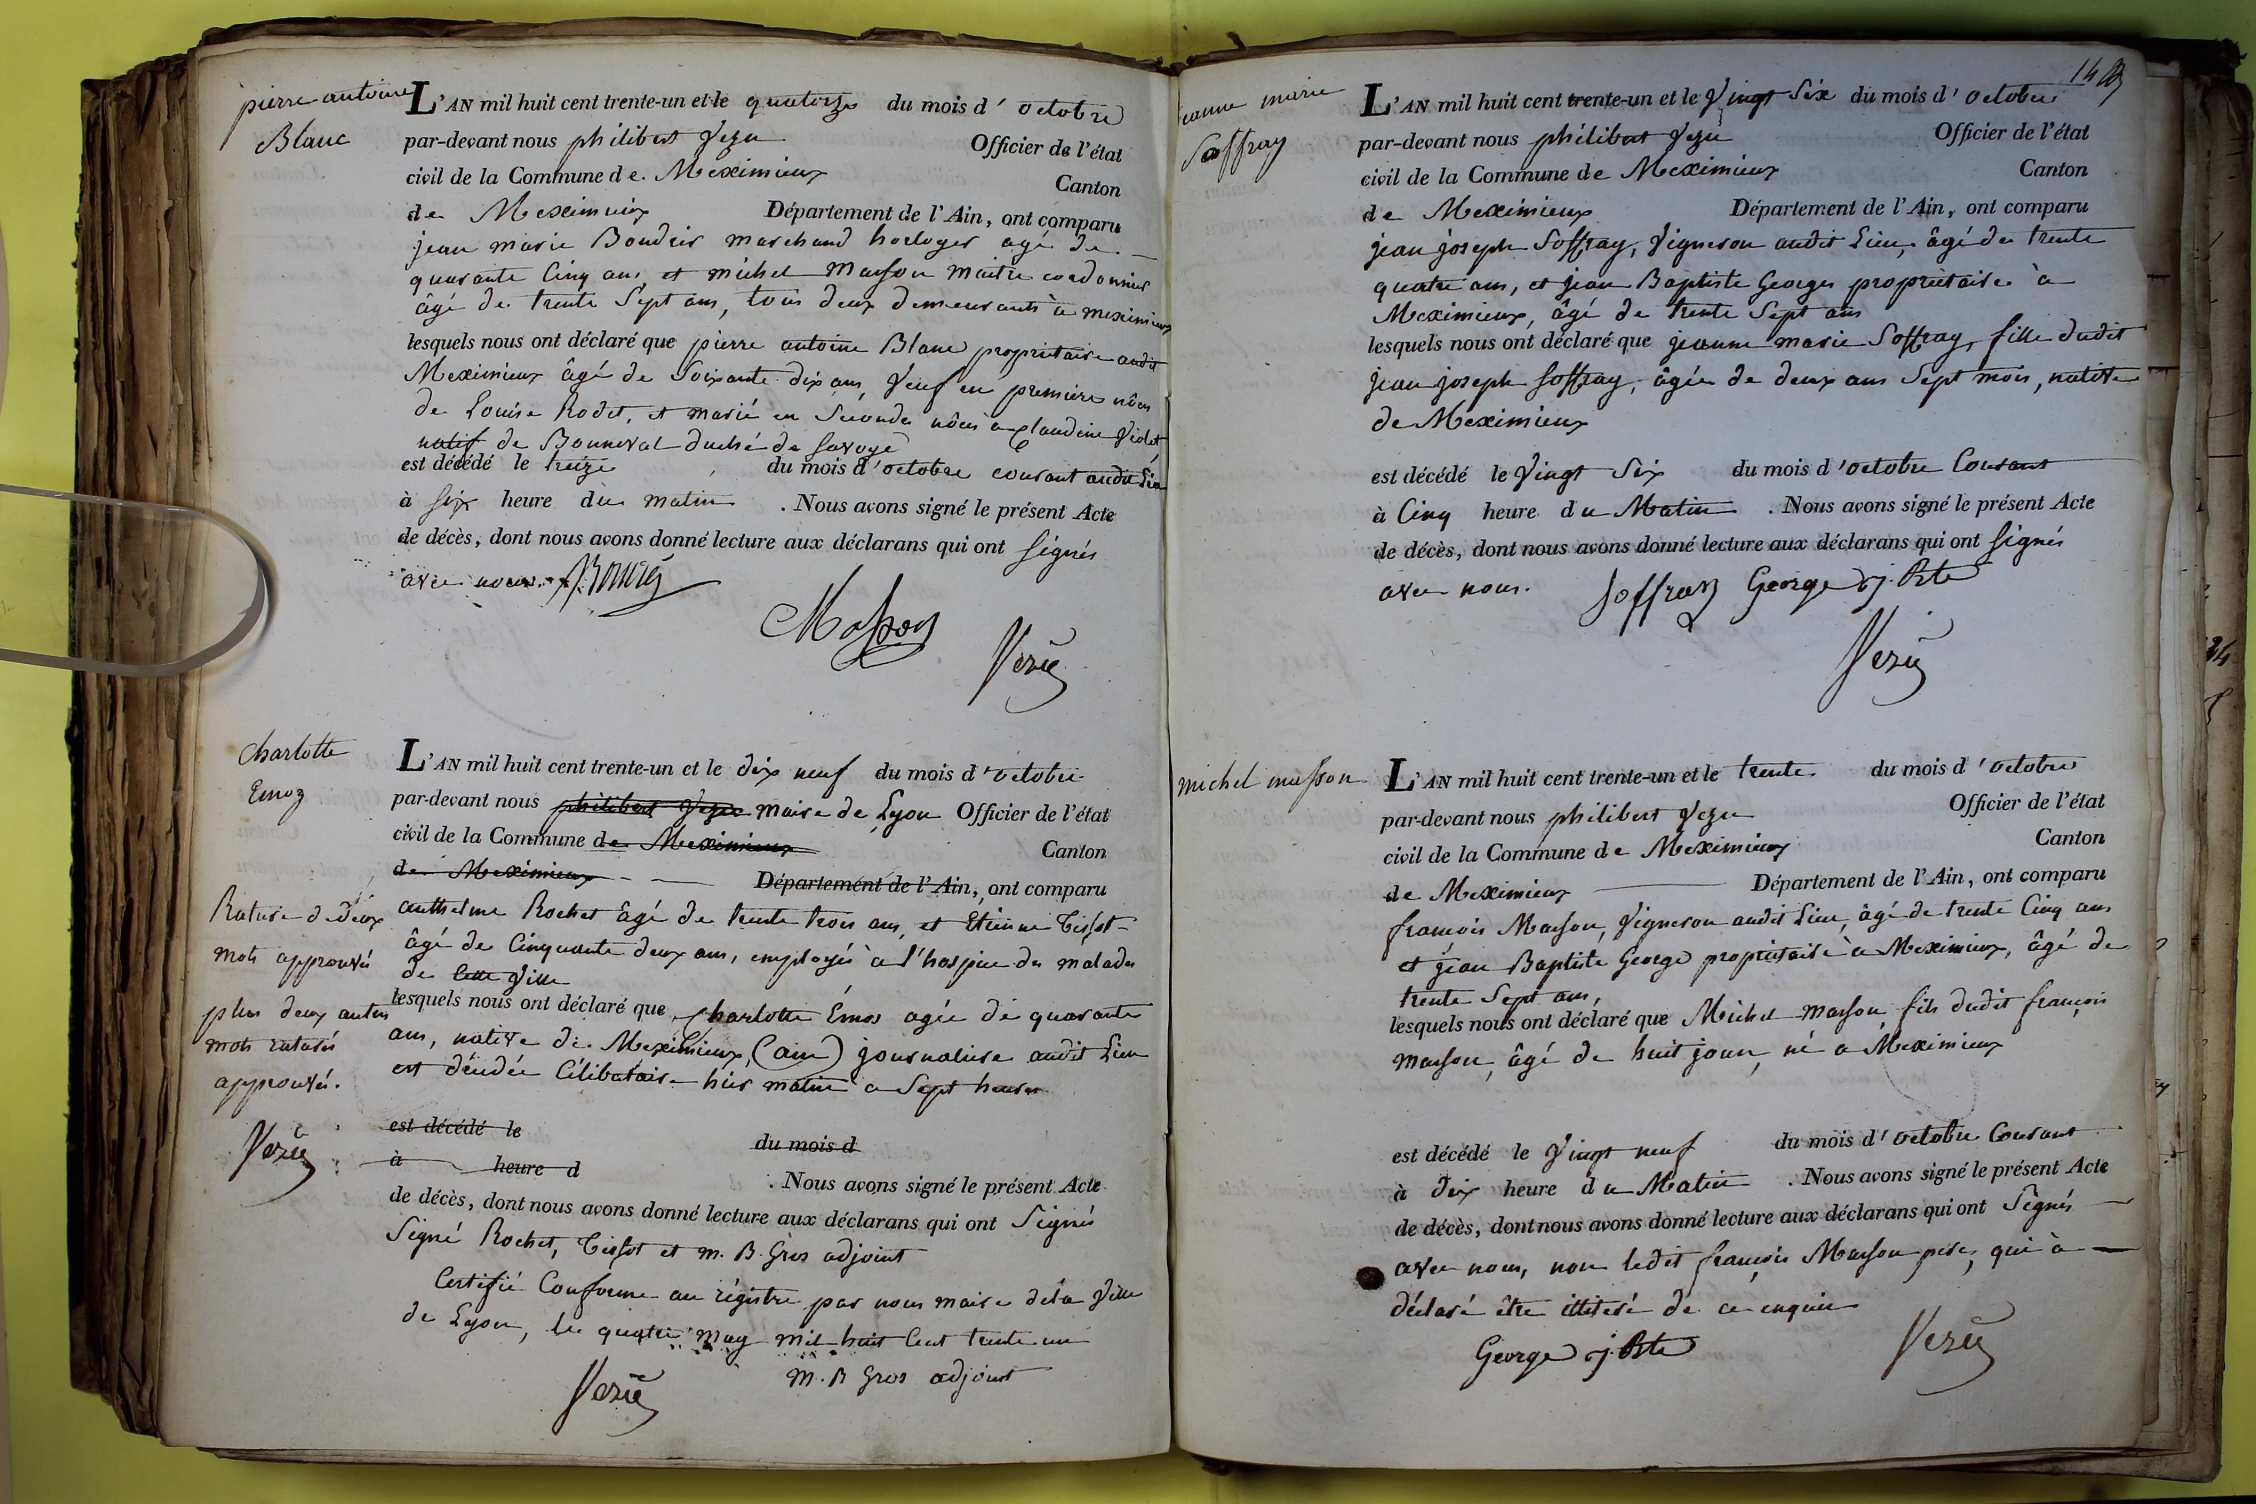 pierre antoine
Blanc
L'AN mil huit cent trente-un et le quatorze du mois d'octobre
par-devant nous philibert Vezu Officier de l'état
civil de la Commune de Meximieux Canton
de Meximieux Département de l'Ain, ont comparu
jean marie Boudrie marchand horloger agé de
quarante Cinq ans, et michel Masson maitre cordonnier
âgé de trente Sept ans, tous deux demeurants à meximieux
lesquels nous ont déclaré que pierre antoine Blanc propriétaire audit
Meximieux âgé de Soixante dix ans, Veuf en premiere nôces
de Louise Rodet, et marié en Secondes nôces a Claudine Violet
natif de Bonneval duché de Savoye
est décédé le treize du mois d'octobre courant audit Lieu
à Six heure du matin . Nous avons signé le présent Acte
de décès, dont nous avons donné lecture aux déclarans qui ont Signés
avec nous.
Masson
Vezu
Charlotte
Emoz
L'AN mil huit cent trente-un et le dix neuf du mois d'octobre
par-devant nous philibert Vezu maire de Lyon Officier de l'état
civil de la Commune de Meximieux Canton
de Meximieux Département de l'Ain, ont comparu
anthelme Rochet âgé de trente trois ans, et Etienne Tissot
âgé de Cinquante deux ans, employés à l'hospice des malades
de cette Ville
lesquels nous ont déclaré que Charlotte Émos agée de quarante
ans, native de Meximieux, (ain) journalière audit Lieu
est décédée Célibataire hier matin a Sept heures
est décédé le du mois d
à heure d . Nous avons signé le présent Acte
de décès, dont nous avons donné lecture aux déclarans qui ont Signés
Signé Rochet, Tissot et m. B. Gros adjoint
Certifié Conforme au régistre par nous maire de la Ville
de Lyon, le quatre may mil huit Cent trente un
m. B Gros adjoint
Vezu
Rature de deux
mots approuvés
plus deux autres
mots raturés
approuvés.
Vezu
148
jeanne marie
Soffray
L'AN mil huit cent trente-un et le Vingt Six du mois d'octobre
par-devant nous philibert Vezu Officier de l'état
civil de la Commune de Meximieux Canton
de Meximieux Département de l'Ain, ont comparu
jean joseph Soffray, Vigneron audit Lieu, âgé de trente
quatre ans, et jean Baptiste Georges propriètaire à
Meximieux, âgé de trente Sept ans
lesquels nous ont déclaré que jeanne marie Soffray, fille dudit
jean joseph Soffray, âgée de deux ans Sept mois, native
de Meximieux
est décédé le Vingt Six du mois d'octobre Courant
à Cinq heure du Matin . Nous avons signé le présent Acte
de décès, dont nous avons donné lecture aux déclarans qui ont Signés
avec nous. Soffray George j. Bte
Vezu
michel masson
L'AN mil huit cent trente-un et le trente du mois d'octobre
par-devant nous philibert Vezu Officier de l'état
civil de la Commune de Meximieux Canton
de Meximieux Département de l'Ain, ont comparu
françois Masson, Vigneron audit Lieu, âgé de trente Cinq ans
et jean Baptiste George propriétaire à Meximieux, âgé de
trente Sept ans,
lesquels nous ont déclaré que Michel Masson, fils dudit françois
masson, âgé de huit jours, né a Meximieux
est décédé le Vingt neuf du mois d'octobre Courant
à dix heure du Matin . Nous avons signé le présent Acte
de décès, dont nous avons donné lecture aux déclarans qui ont Signés
avec nous, non ledit françois Masson pere, qui à
déclaré être illiteré de ce enquis
George j. Bte
Vezu